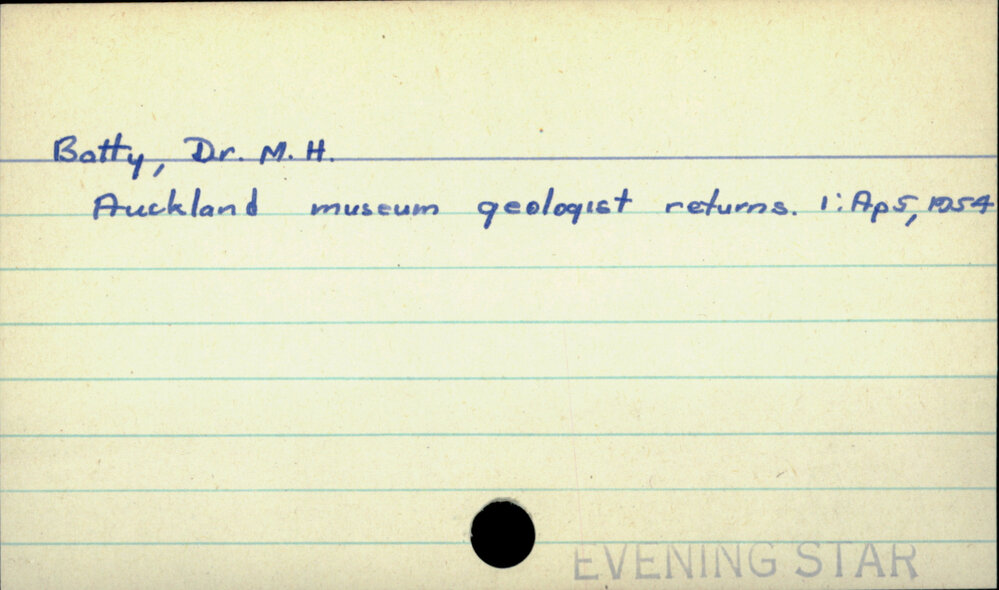 Batty, Dr. M. H.
Auckland museum geologist returns. 1: Ap 5, 1954
EVENING STAR